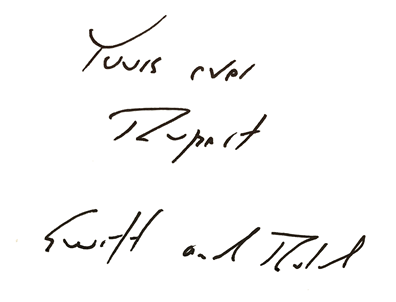 Yours ever
Rupert
Swift and Bold